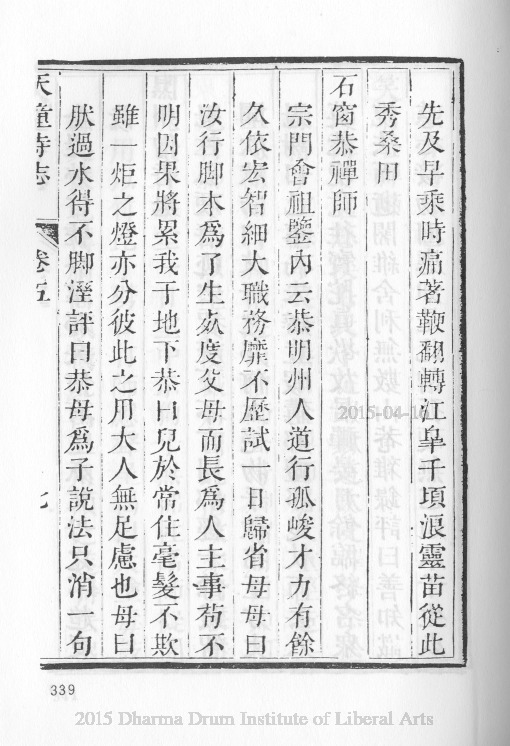 先及早乘時痛著鞭翻轉江臯千頃浪靈苗從此
秀桑田
石窗恭禪師
宗門會祖鑒內云恭明州人道行孤峻才力有餘
久依宏智細大職務靡不歷試一日歸省母母曰
汝行脚本爲了生死度父母而長爲人主事苟不
明因果將累我于地下恭曰兒於常住毫髮不欺
雖一炬之燈亦分彼此之用大人無足慮也母曰
肰過水得不脚溼評曰恭母爲子說法只消一句
天童寺志
卷五
七
339
2015-04-10
2015 Dharma Drum Institute of Liberal Arts